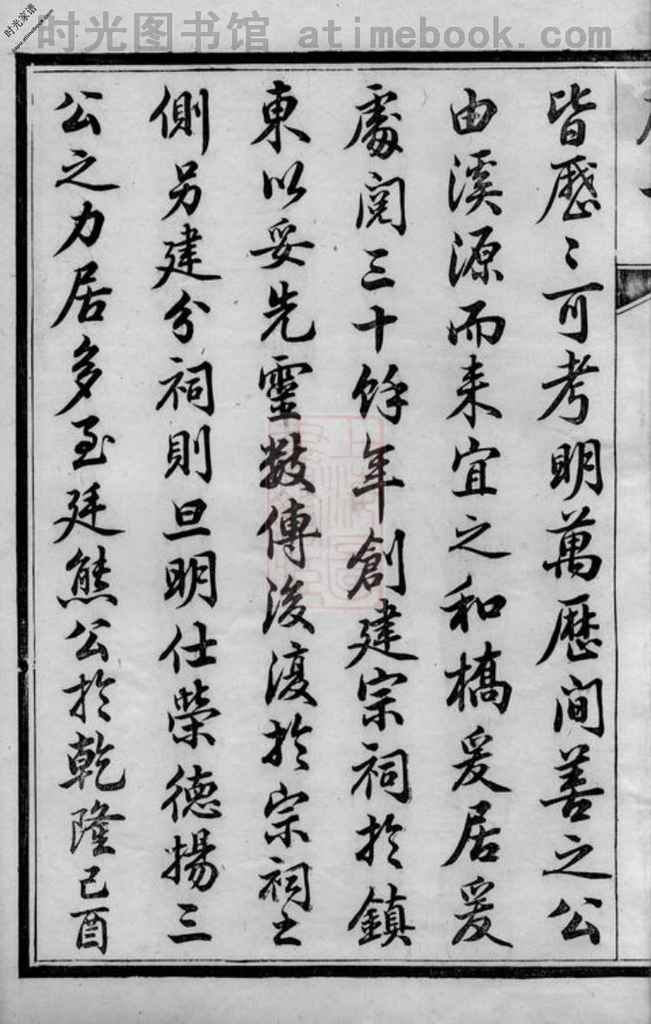 时光家谱
时光图书馆 atimebook.com
皆歷〻可考明萬歷间善之公
由溪源而来宜之和橋爰居爰
處閲三十餘年創建宗祠扵鎮
東以妥先靈数傳後復扵宗祠之
側另建分祠則旦明仕榮德揚三
公之力居多至廷熊公扵乾隆己酉